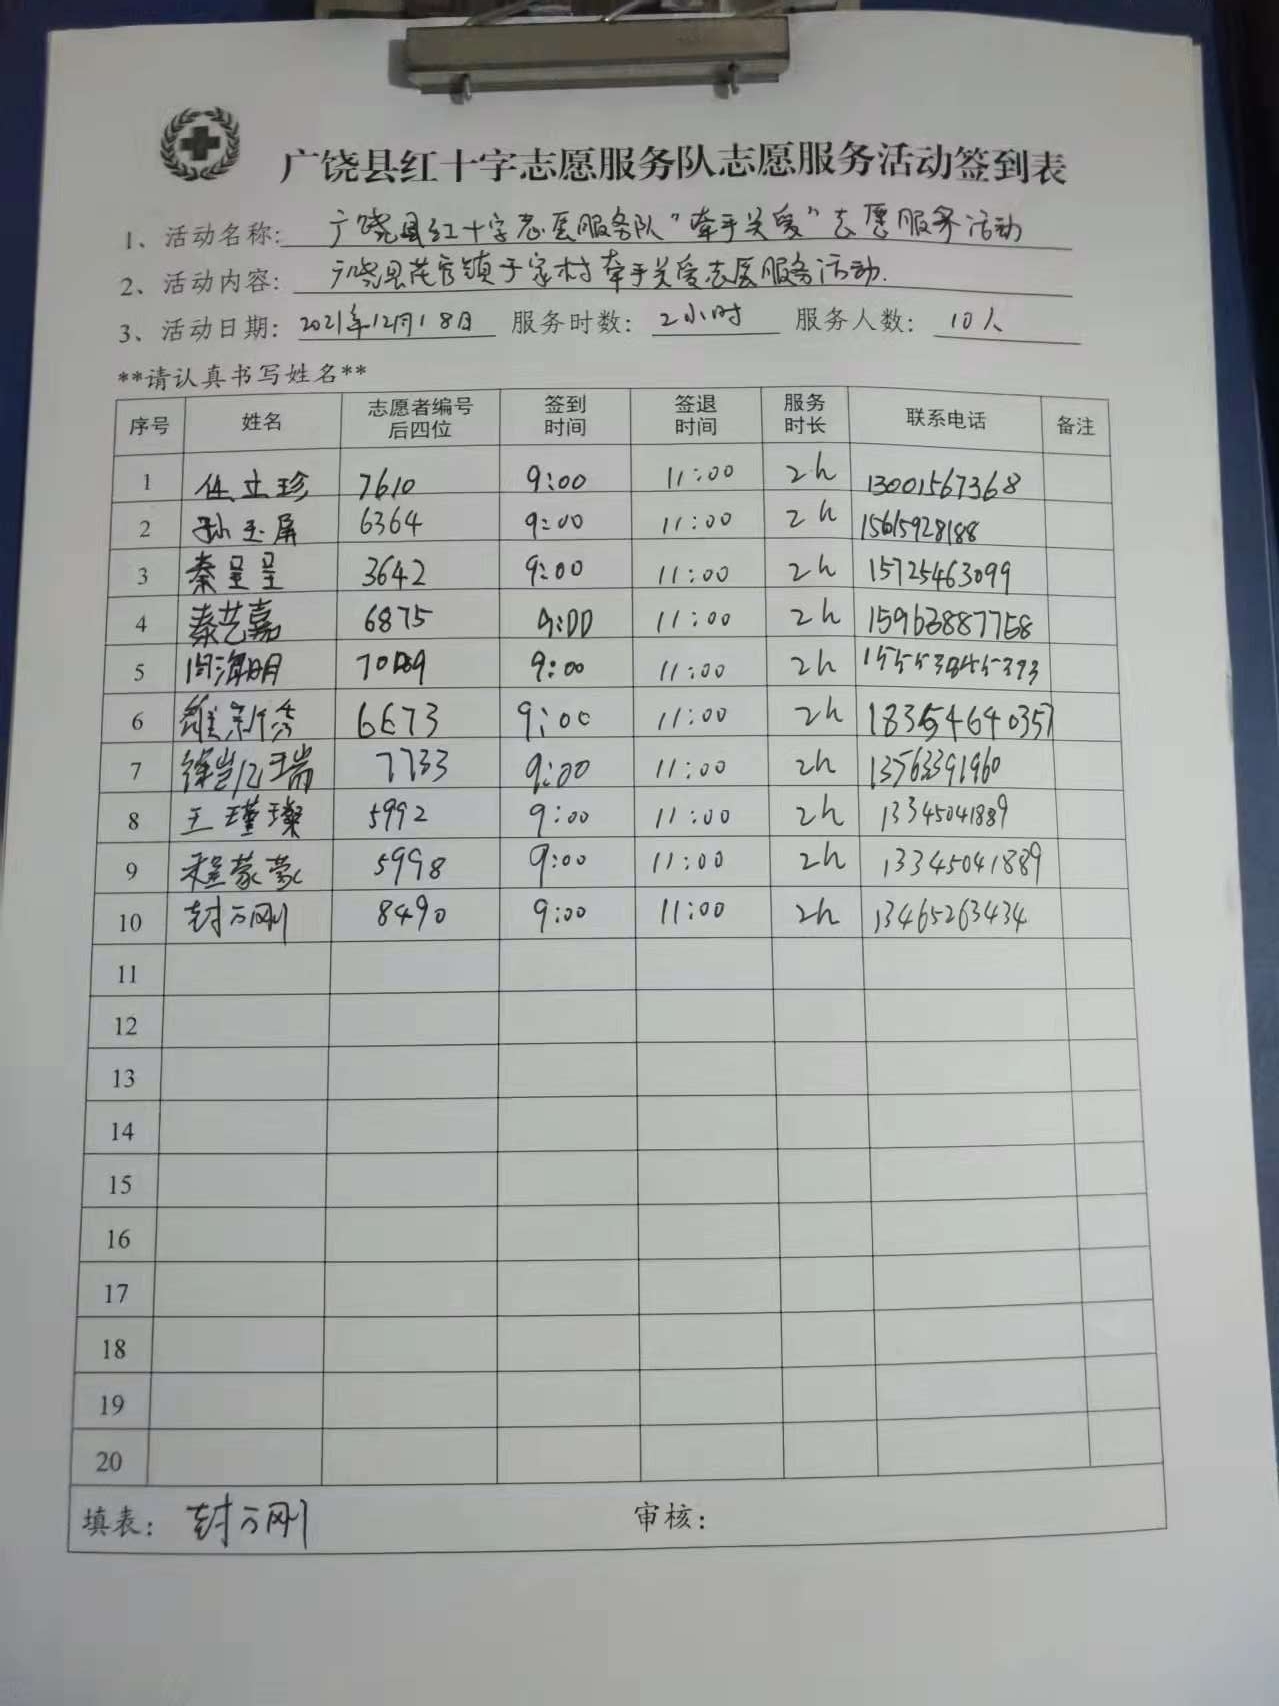 广饶县红十字志愿服务队志愿服务活动签到表
1、活动名称: 广饶县红十字志愿服务队"牵手关爱"志愿服务活动
2、活动内容: 广饶县花官镇于家村牵手关爱志愿服务活动.
3、活动日期: 2021年12月18日 服务时数: 2小时 服务人数: 10人
**请认真书写姓名**
序号 姓名 志愿者编号后四位 签到时间 签退时间 服务时长 联系电话 备注
1 任立珍 7610 9:00 11:00 2h 13001567368
2 孙玉屏 6364 9:00 11:00 2h 15615928188
3 秦呈呈 3642 9:00 11:00 2h 15725463099
4 秦艺嘉 6875 9:00 11:00 2h
5 海明 9:00 11:00 2h
6 9:00 11:00 2h
7 瑞 7733 9:00 11:00 2h 13563391960
8 王瑾璨 5992 9:00 11:00 2h 13345041889
9 程蒙蒙 5998 9:00 11:00 2h 13345041889
10 封万刚 8490 9:00 11:00 2h 13465263434
11
12
13
14
15
16
17
18
19
20
填表: 封万刚 审核: